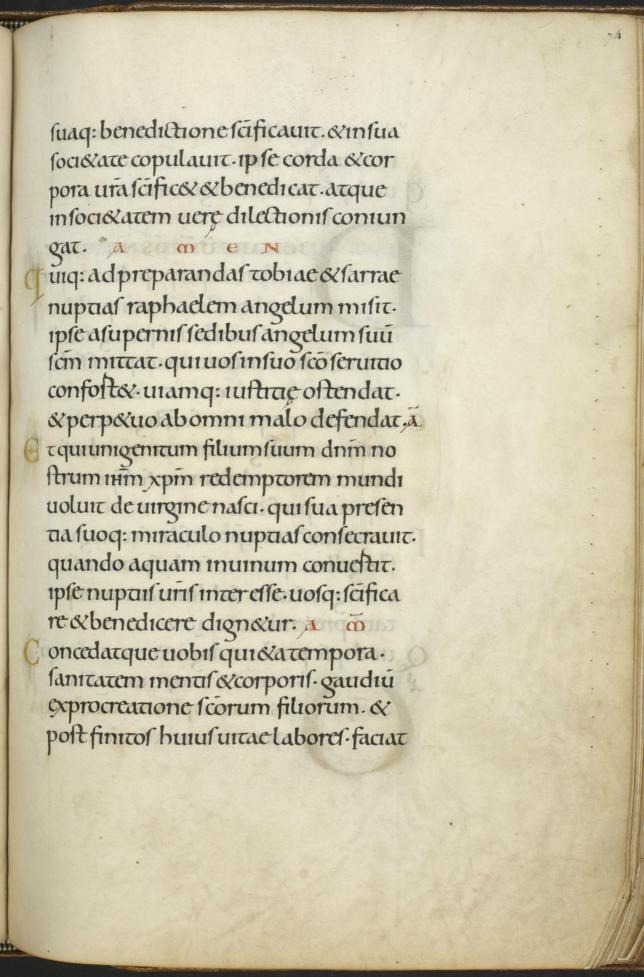 74
suaq: benedictione sc̄ificauit. & in sua
soci&ate copulauit. ipse corda & cor
pora ur̄a sc̄ific& & benedicat. atque
in soci&atem uerę dilectionis coniun
gat. A M E N
Quiq: ad preparandas tobiae & sarrae
nuptias raphaelem angelum misit.
ipse a supernis sedibus angelum suū
sc̄m mittat. qui uos in suo sc̄o seruitio
confort&. uiamq: iustitię ostendat.
& perp&uo ab omni malo defendat. ā
Et qui unigenitum filium suum dn̄m no
strum ih̄m xp̄m redemptorem mundi
uoluit de uirgine nasci. qui sua presen
tia suoq: miraculo nuptias consecrauit.
quando aquam in uinum conuertit.
ipse nuptiis ur̄is interesse. uosq: sc̄ifica
re & benedicere dign&ur. A m̄
Concedatque uobis qui&a tempora.
sanitatem mentis & corporis. gaudiū
ex procreatione sc̄orum filiorum. &
post finitos huius uitae labores. faciat